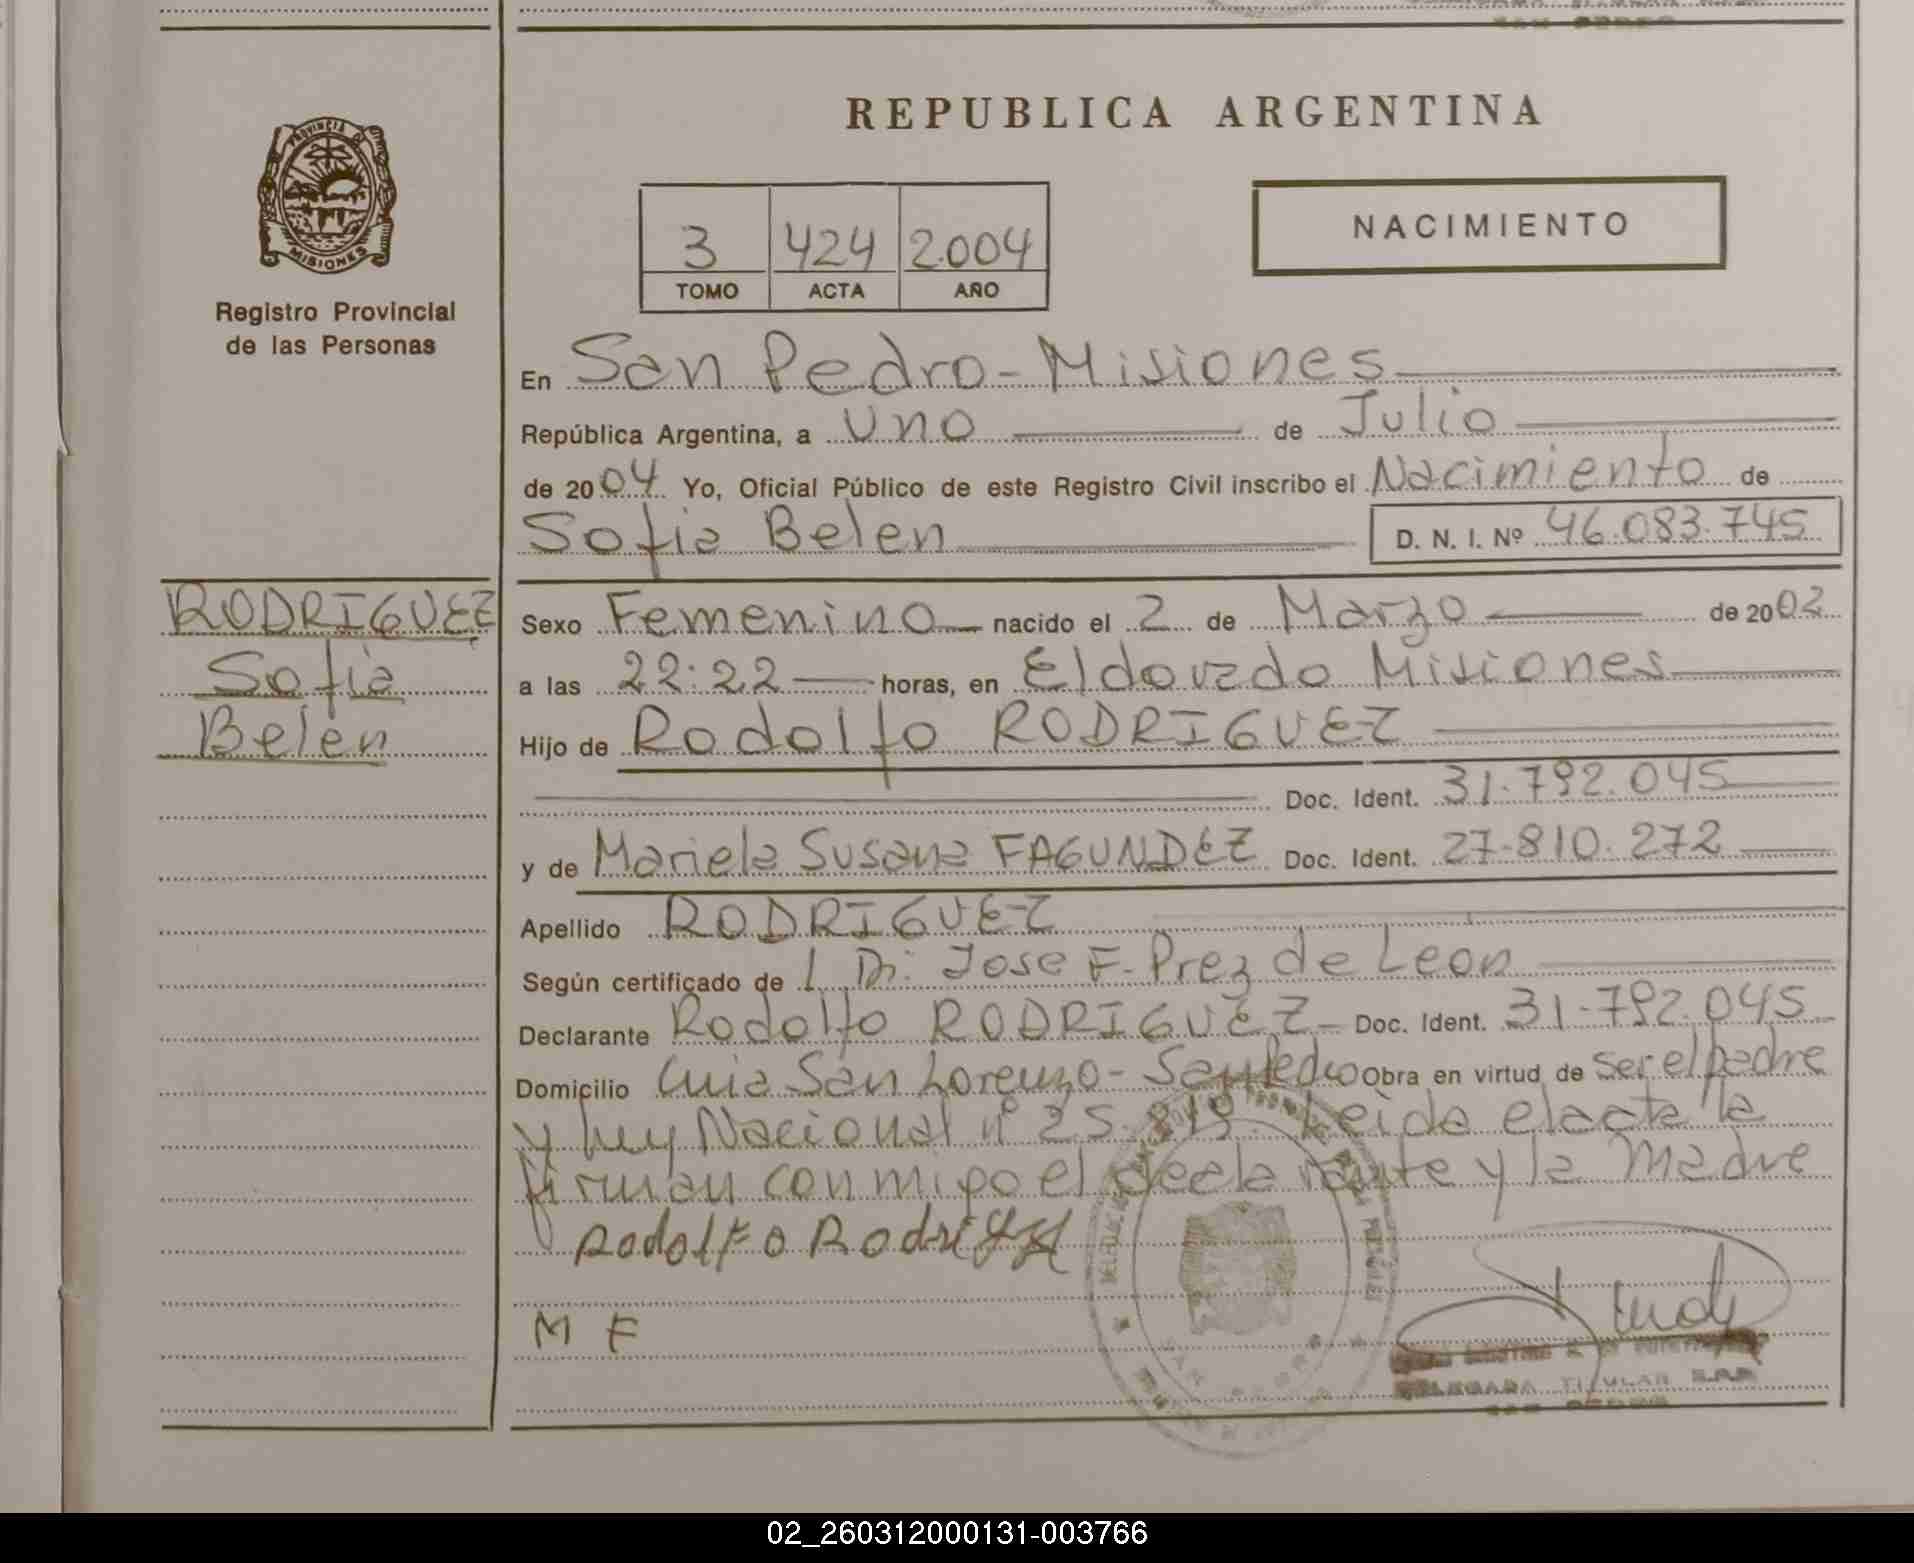 REPUBLICA ARGENTINA
PROVINCIA
MISIONES
Registro Provincial
de las Personas
3 424 2.004
TOMO ACTA AÑO
NACIMIENTO
En San Pedro - Misiones
República Argentina, a Uno de Julio
de 2004 Yo, Oficial Público de este Registro Civil inscribo el Nacimiento de
Sofia Belen D. N. I. Nº 46.083.745
RODRIGUEZ
Sofia
Belen
Sexo Femenino nacido el 2 de Marzo de 2002
a las 22:22 horas, en Eldorado Misiones
Hijo de Rodolfo RODRIGUEZ
Doc. Ident. 31.792.045
y de Mariela Susana FAGUNDEZ Doc. Ident. 27.810.272
Apellido RODRIGUEZ
Según certificado de Dr: Jose F. Prez de Leon
Declarante Rodolfo RODRIGUEZ - Doc. Ident. 31.792.045
Domicilio San Lorenzo - San Pedro Obra en virtud de ser el padre
y Ley Nacional nº 25.819. Leida el acta la
firman conmigo el declarante y la madre
Rodolfo Rodriguez
M F
DELEGADA TITULAR
SAN PEDRO
02_260312000131-003766